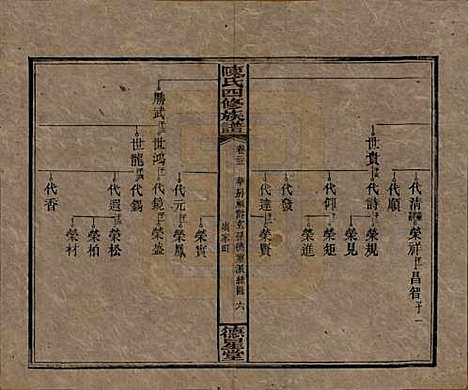 世貴
代清 榮祥 昌智 子一
代順
代詩 榮規
榮見
代仰 榮矩
榮進
代發
代達 榮賢
陳氏四修族譜
德星堂
勝武
世鴻
榮實
代元 榮鳳
代鏡 榮盛
世龍
代錫
榮松
代遐 榮柏
榮材
代香